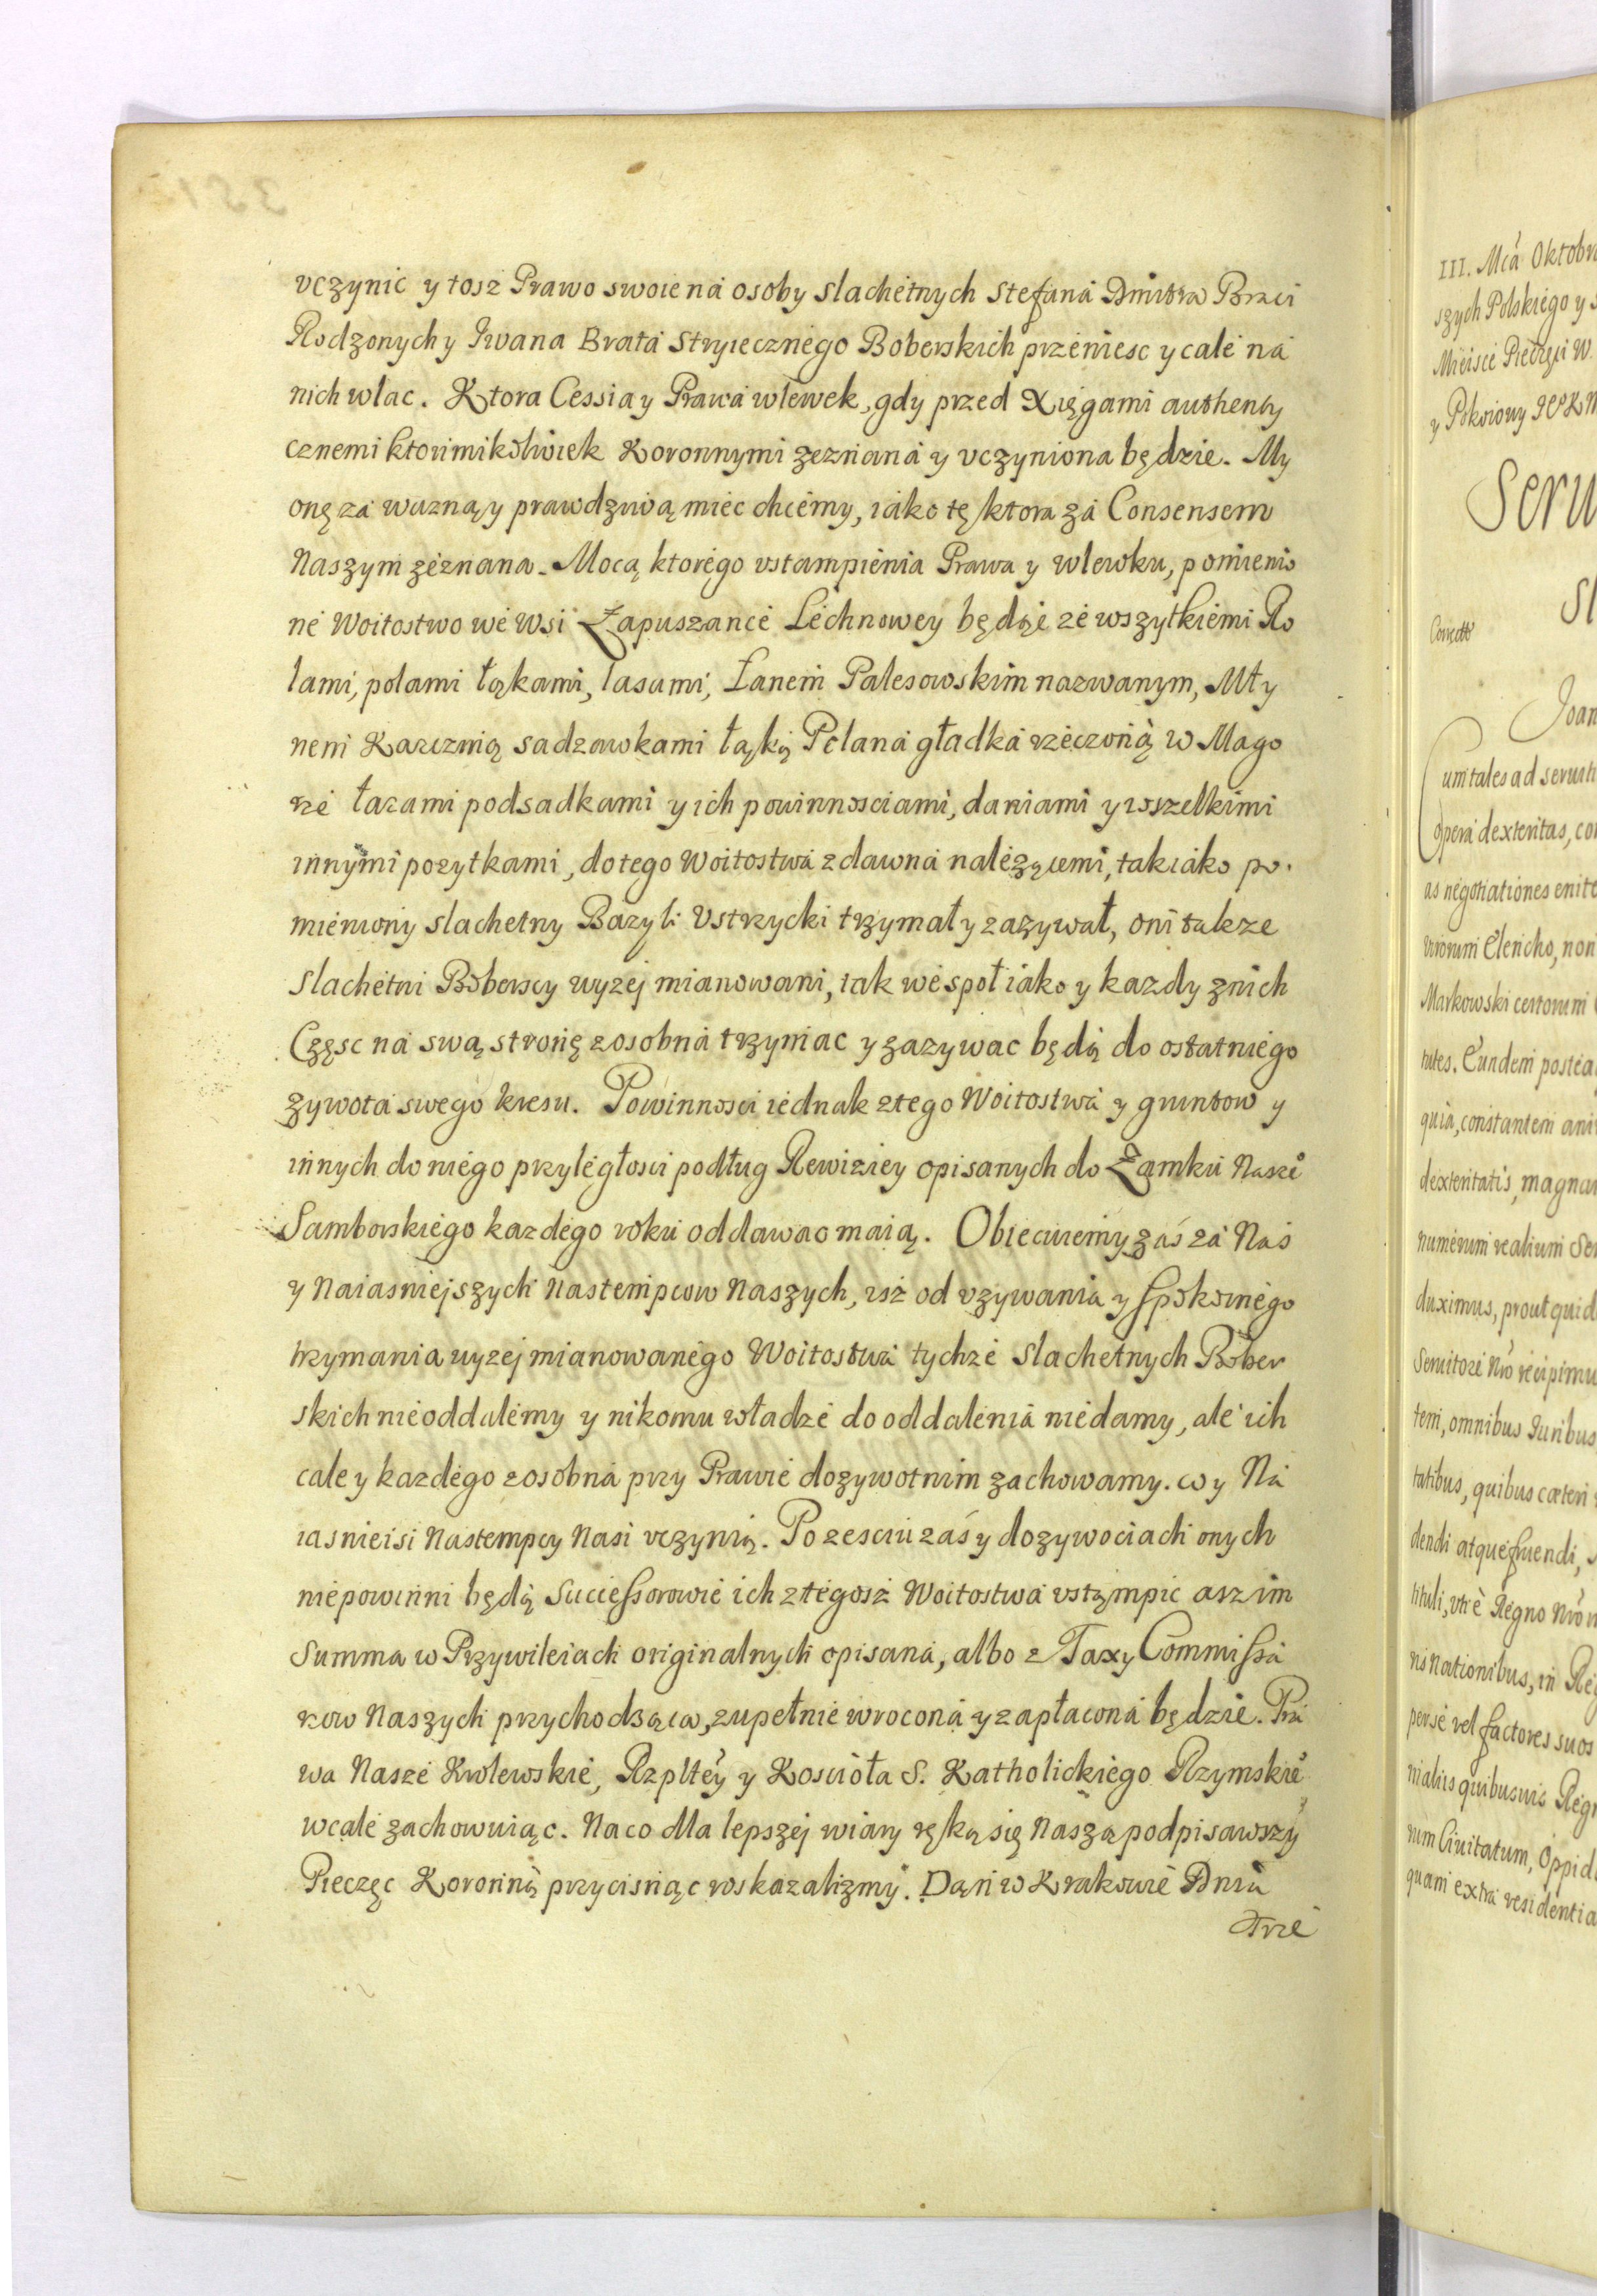 vczynic y tosz Prawo swoie ná osoby slachetnych Stefaná Dmitra Braci
Rodzonych y Iwana Bratá Stryiecznego Boberskich przeniesc y cale ná
nich wlac. Ktora Cessia y Prawá wlewek, gdy przed Xięgami authenty
cznemi ktorimikolwiek Koronnymi zeznaná y vczyniona będzie. My
onę zá wazną y prawdziwą miec chcemy, iáko tę ktora zá Consensem
Naszym zeznana. Mocą ktorego vstampienia Prawa y wlewku, pomienio
ne Woitostwo we Wsi Zapuszance Lechnowey będzie ze wszytkiemi Ro
lami, polami łąkami, lasami, Łanem Palesowskim nazwanym, Mły
nem Karczmią sadzawkami łąką Polaná gładká rzeczoną w Mago
rze łazami podsadkami y ich powinnosciami, daniami y wszelkimi
innymi pozytkami, do tego Woitostwá zdawná nalezącemi, tak iáko po
mieniony slachetny Bazyli Vstrzycki trzymał y zazywał, oni takze
Slachetni Boberscy wyzej mianowani, tak wespoł iáko y kazdy znich
Częsc ná swą stronę zosobná trzymac y zazywac będą do ostatniego
zywotá swego kresu. Powinnosci iednak ztego Woitostwá y gruntow y
innych do niego przyległosci podług Rewiziey opisanych do Zamku Nasze͠
Samborskiego kazdego roku oddawac maią. Obiecuiemy záś zá Nas
y Naiasniejszych Nastempcow Naszych, isz od vzywania y spokoinego
trzymania wyzej mianowanego Woitostwá tychze Slachetnych Bober
skich nie oddalemy y nikomu władze do oddalenia niedamy, ale ich
cale y kazdego zosobná przy Prawie dozywotnim zachowamy. co y Ná
iasnieisi Nastempcy Nasi vczynią. Po zesciu záś y dozywociach onych
niepowinni będą Successorowie ich ztegosz Woitostwá vstąmpic asz im
Summa w Przywileiach originalnych opisaná, albo z Taxy Commissá
rzow Naszych przychodząca, zupełnie wroconá y zapłaconá będzie. Prá
wa Nasze Krolewskie, Rzpltey y Kosciołá S. Katholickiego Rzymskie͠
wcale zachowuiąc. Na co dla lepszej wiary ręką się Naszą podpisawszy
Pieczęc Koronną przycisnąc roskazalizmy. Dan w Krakowie Dniá
Trze
III. Mcá Oktobr
szych Polskiego y
Mieisce Pieczęci W
Seru
Correcta
Joan
Cum tales ad seruit
opera dexteritas, co
as negotiationes enite
uiorum Clencho, non
Markowski certorum
tutes. Eundem postea
quia, constantem ani
dexteritatis, magnam
numerum realium Se
duximus, prout quid
Seruitore Nro recipimu
tem, omnibus Juribus
tatibus, quibus cæteri
dendi atque fruendi,
tituli, vti è Regno Nro
nis nationibus, in Re
per se vel factores suos
nialiis quibusuis Reg
rum Ciuitatum, Oppid
quam extra residentia